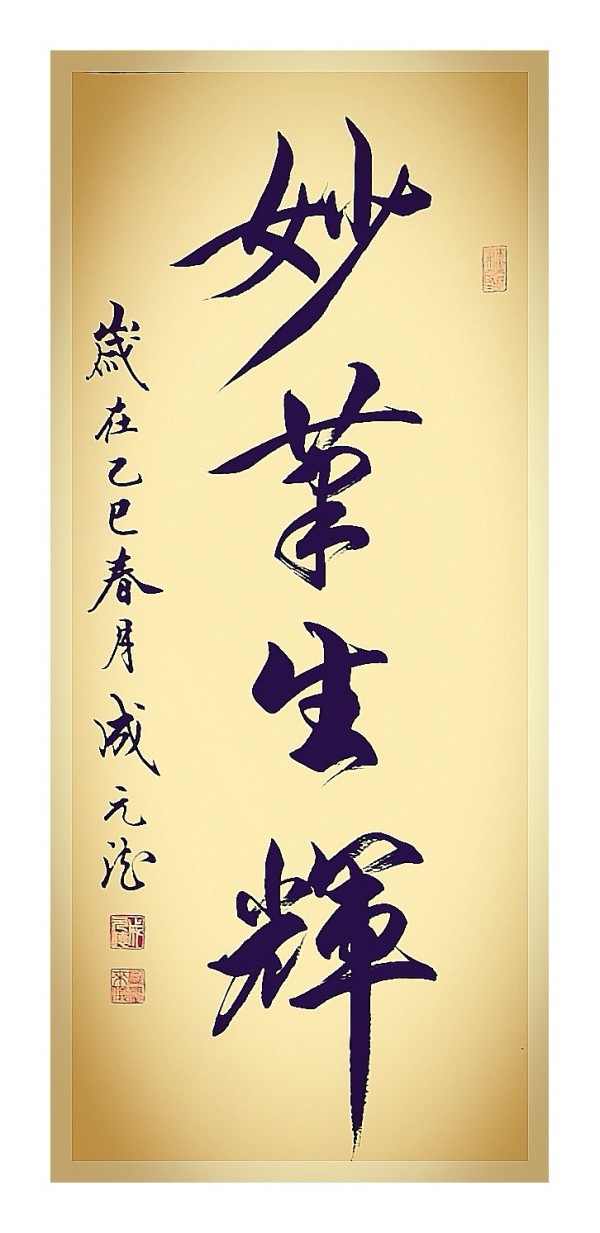 妙筆生輝
歲在乙巳春月成元